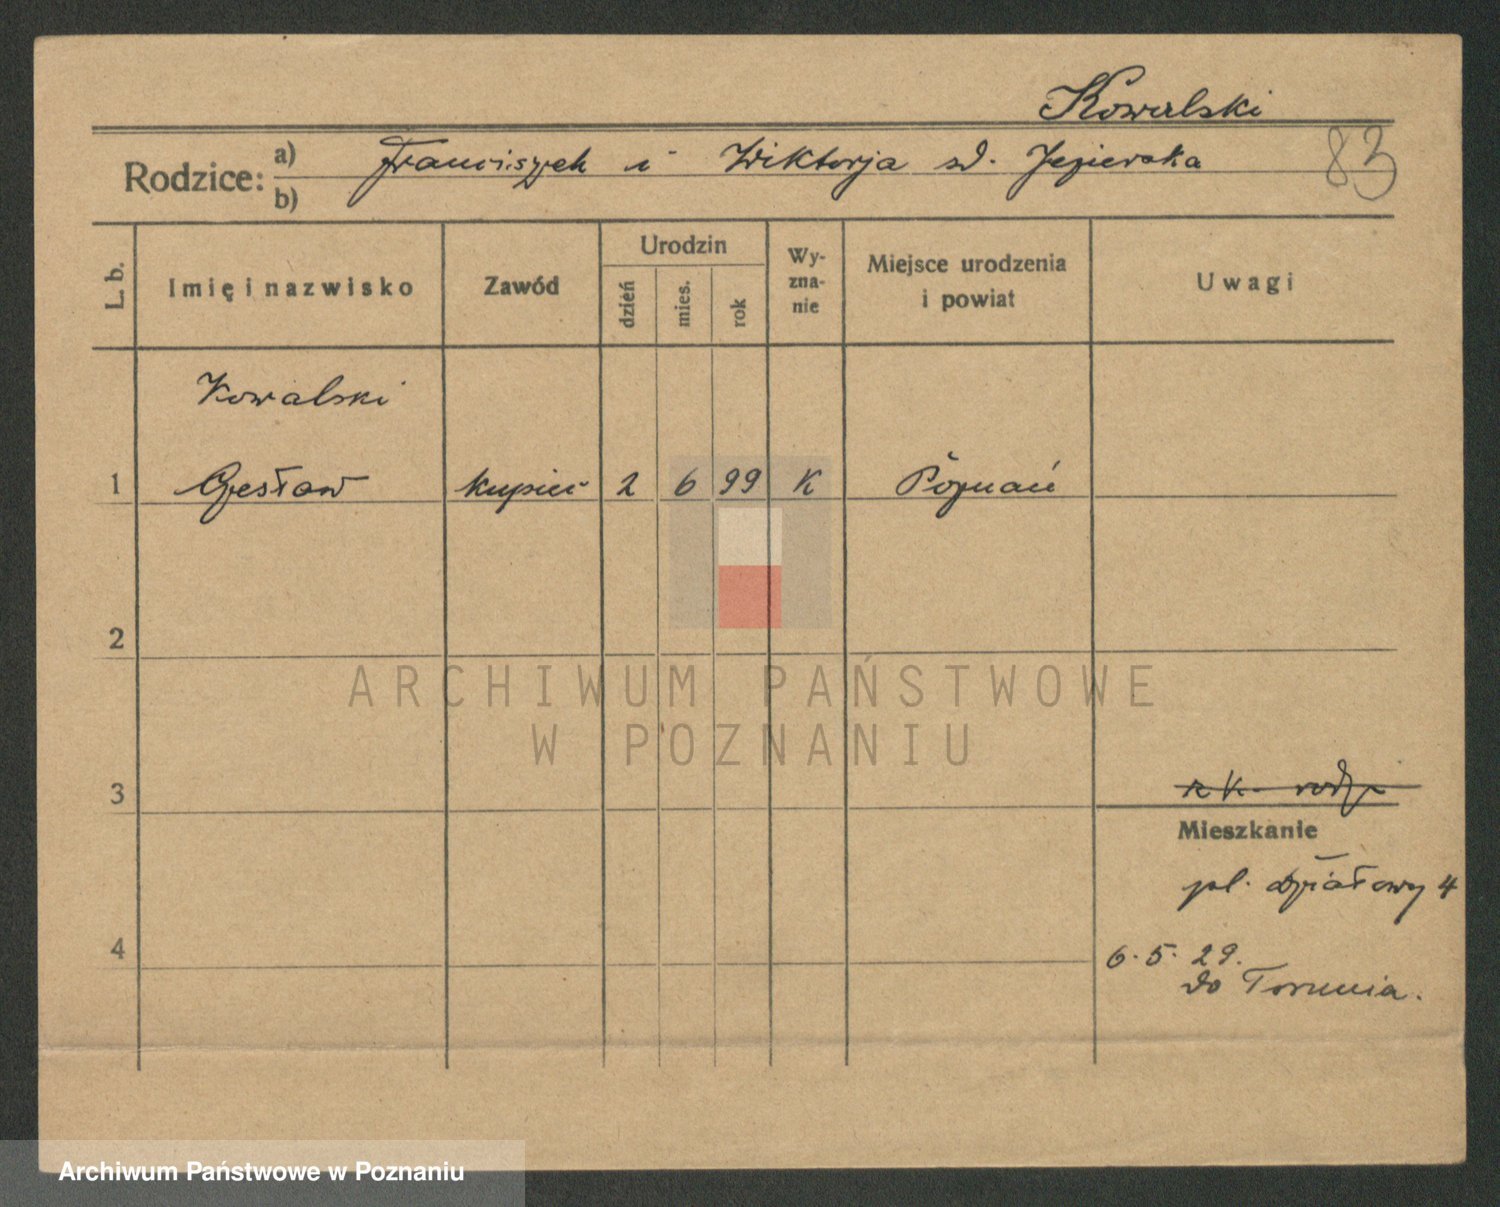 Kowalski
83
Rodzice: a) Franciszek i Wiktorja zd. Jezierska
b)
L. b.
Imię i nazwisko
Zawód
Urodzin
dzień
mies.
rok
Wy-
zna-
nie
Miejsce urodzenia
i powiat
Uwagi
Kowalski
1 Czesław kupiec 2 6 99 K Poznań
2
ARCHIWUM PAŃSTWOWE
W POZNANIU
3
Mieszkanie
pl. Działowy 4
4
6. 5. 29.
do Torunia.
Archiwum Państwowe w Poznaniu